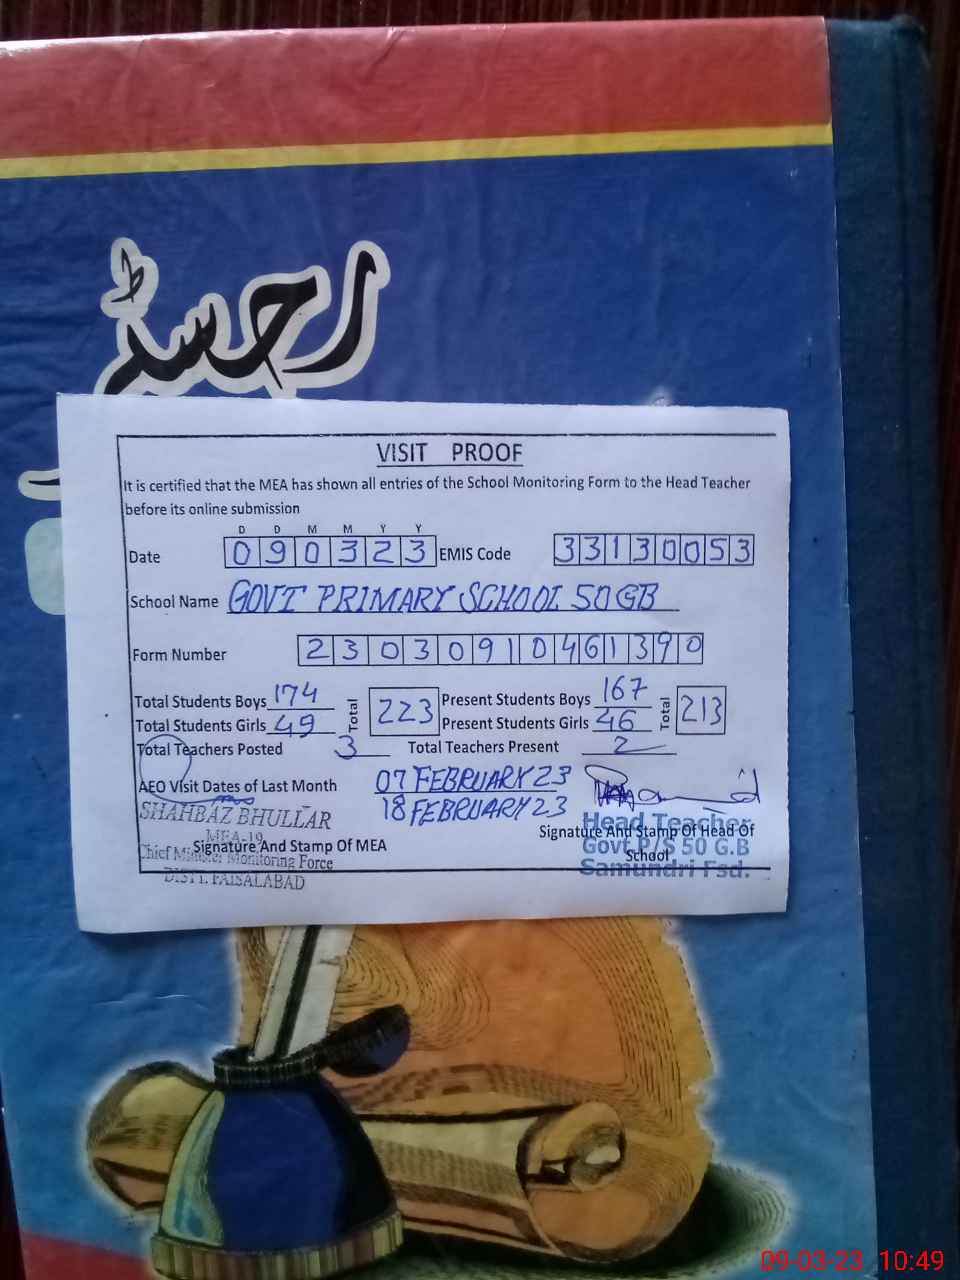 رجسٹر
VISIT PROOF
It is certified that the MEA has shown all entries of the School Monitoring Form to the Head Teacher
before its online submission
D D M M Y Y
Date 090323 EMIS Code 33130053
School Name GOVT PRIMARY SCHOOL 50 GB
Form Number 23030910461390
Total Students Boys 174 Total 223 Present Students Boys 167 Total 213
Total Students Girls 49 Present Students Girls 46
Total Teachers Posted 3 Total Teachers Present 2
AEO Visit Dates of Last Month 07 FEBRUARY 23
18 FEBRUARY 23
SHAHBAZ BHULLAR
MEA-19
Signature And Stamp Of MEA
Chief Minister Monitoring Force
DISTT. FAISALABAD
Head Teacher
Signature And Stamp Of Head Of
School
Govt P/S 50 G.B
Samundri Fsd.
09-03-23 10:49